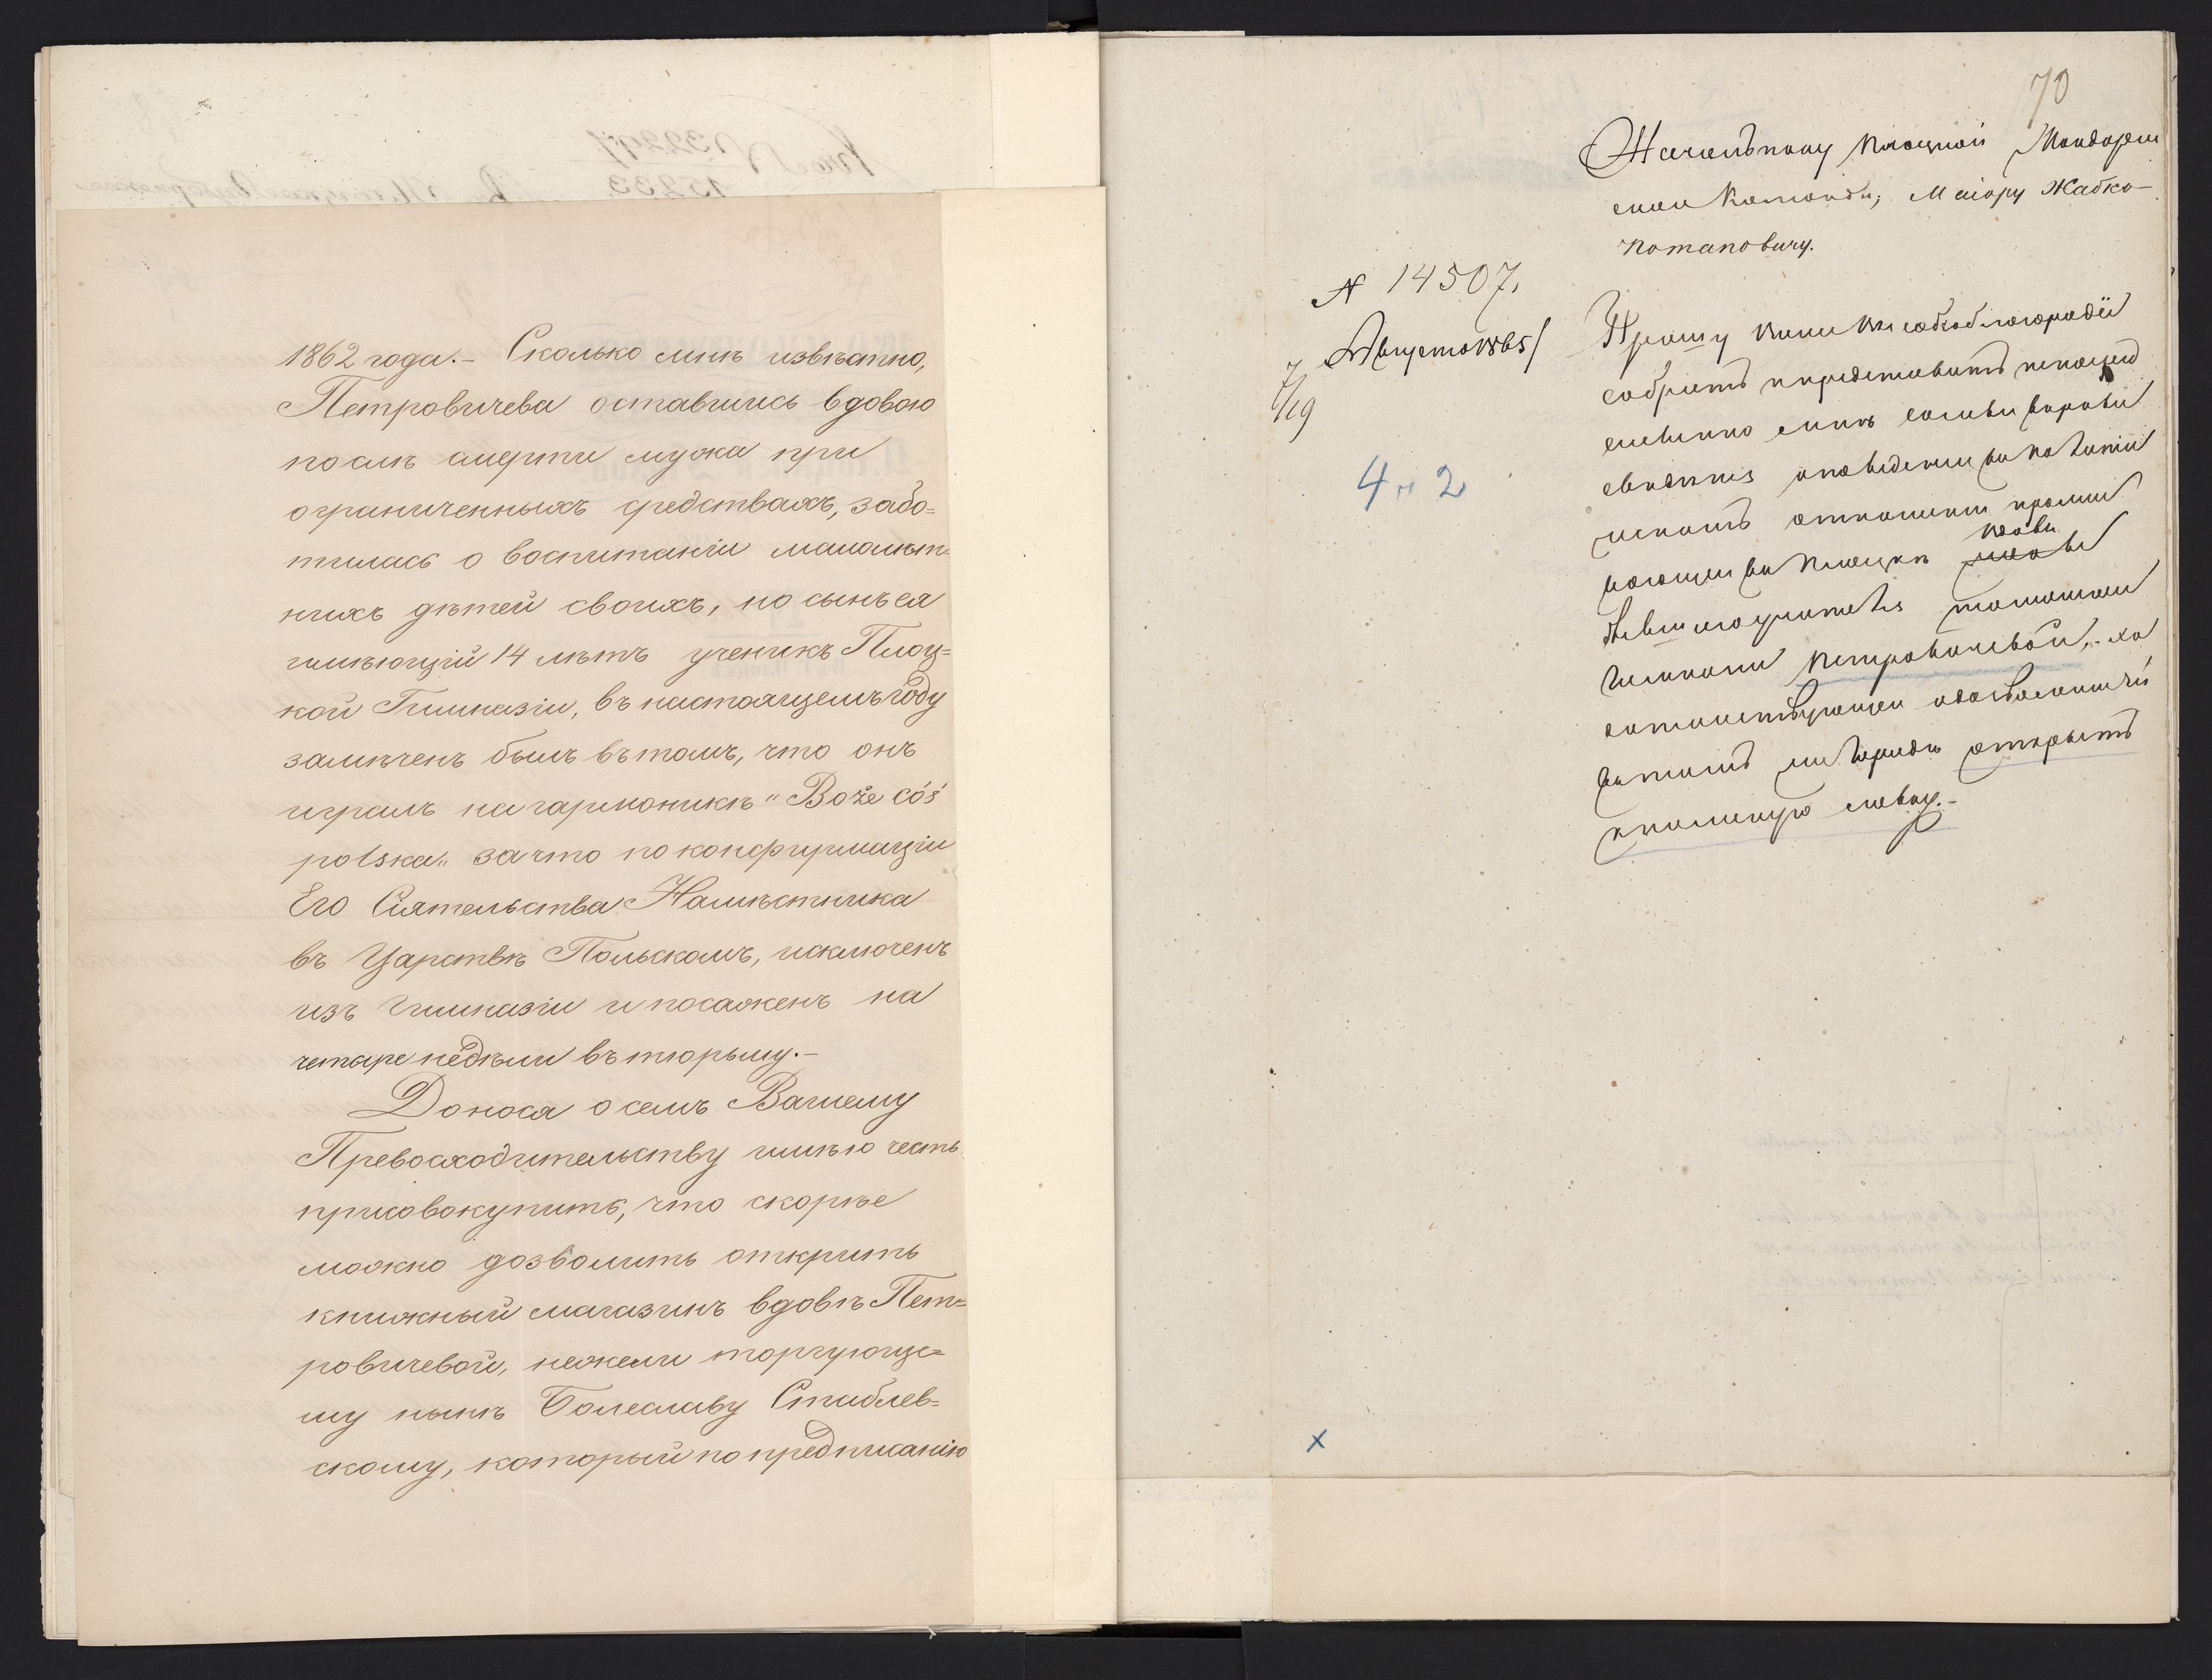 1862 года.- Сколько мнѣ извѣстно,
Петровичева оставшись вдовою
послѣ смерти мужа при
ограниченныхъ средствахъ, забо=
тилась о воспитаніи малолѣт=
нихъ дѣтей своихъ, но сынъ ея
имѣющій 14 лѣтъ ученикъ Плоц=
кой Гимназіи, въ настоящемъ году
замѣченъ былъ въ томъ, что онъ
игралъ на гармоникѣ "Boże cóś
polska" за что по конфирмаціи
Его Сіятельства Намѣстника
въ Царствѣ Польскомъ, исключенъ
изъ Гимназіи и посаженъ на
четыре недѣли въ тюрьму.-
Донося о семъ Вашему
Превосходительству имѣю честь
присовокупить, что скорѣе
можно дозволить открыть
книжный магазинъ вдовѣ Пет=
ровичевой, нежели торгующе=
му нынѣ Болеславу Стаблев=
скому, который по предписанію
70
Начальнику Плоцкой Жандарм
ской Команды, Маіору Жабко-
Потаповичу.
N 14507.
Августа 1865
7/19
4 и 2
Прошу Ваше Высокоблагородіе
собрать и представить
мнѣ самыя вѣрныя
свѣдѣнія о поведеніи и политич
отношеніи прожи
вающей въ Плоцкѣ вдовы
бывшаго учителя тамошней
Гимназіи Петровичевой, хо
датайствующей о дозволеніи ей
въ открыть
книжную лавку.-
x